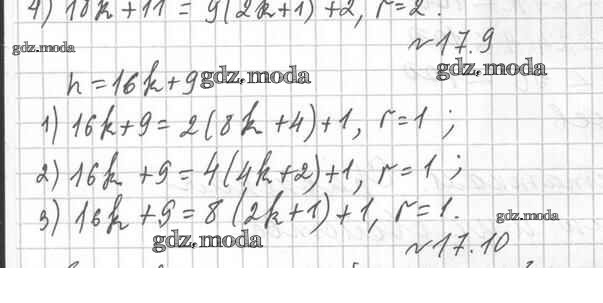 4) 18k+11 = 9(2k+1)+2, r=2.
gdz.moda
№17.9
gdz.moda
n=16k+9 gdz.moda
1) 16k+9=2(8k+4)+1, r=1;
2) 16k+9=4(4k+2)+1, r=1;
3) 16k+9=8(2k+1)+1, r=1.
gdz.moda
gdz.moda
№17.10